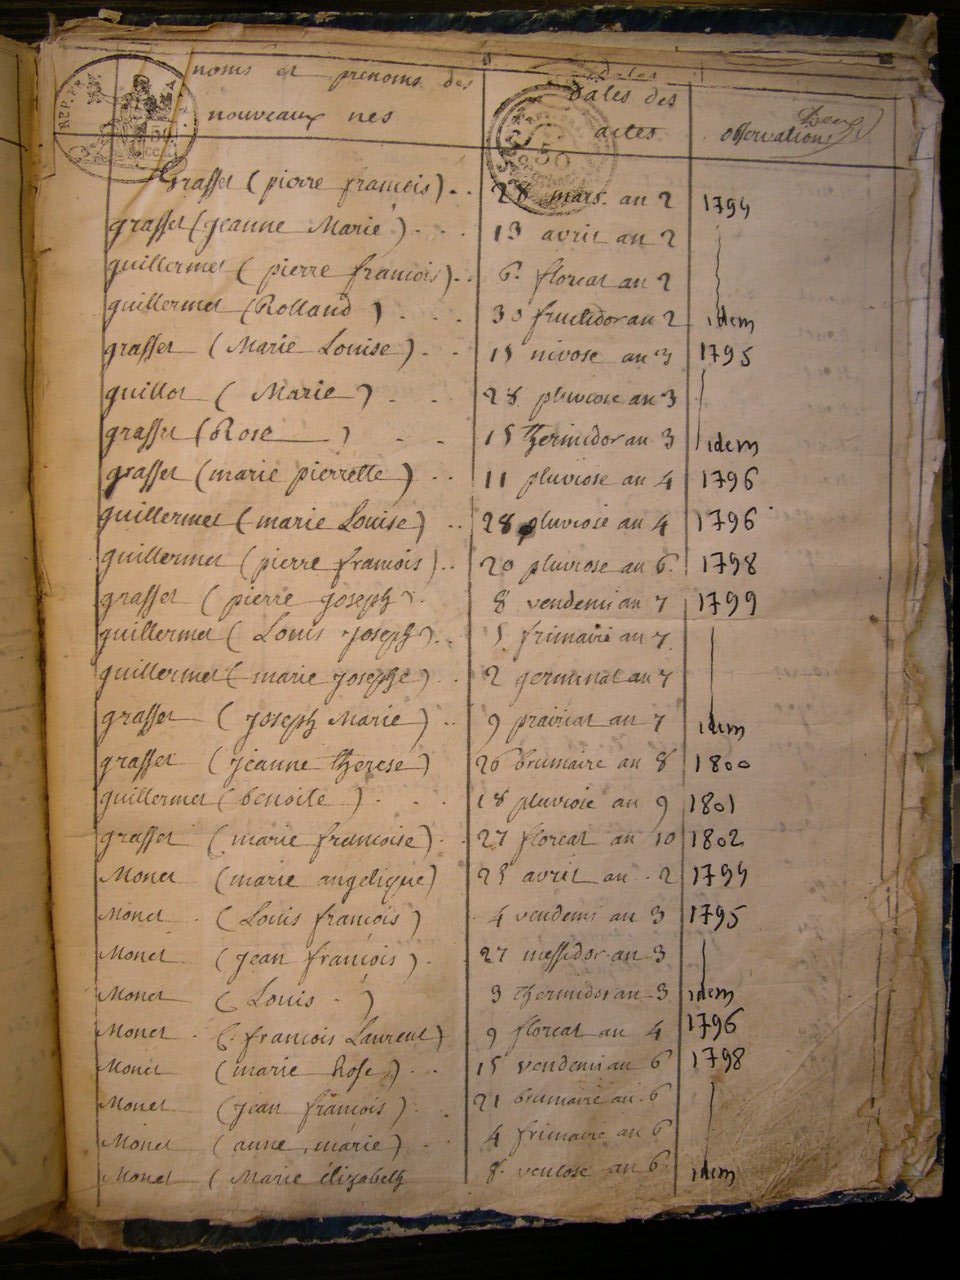 noms et prenoms des nouveaux nes | Dates des actes | observations
grasset (pierre francois) . . 28 mars. an 2 1794
grasset (jeanne Marie) . . . 13 avril an 2
guillermet (pierre francois) . . 6 floreal an 2
guillermet (Rolland) . . . 30 fructidor an 2 idem
grasset (Marie Louise) . . 15 nivose an 3 1795
guillot (Marie) . . 28 pluviose an 3
grasset (Rose) . . 15 thermidor an 3 idem
grasset (marie pierrette) . . 11 pluviose an 4 1796
guillermet (marie Louise) . . 28 pluviose an 4 1796
guillermet (pierre francois) . . 20 pluviose an 6 1798
grasset (pierre joseph) . 8 vendemi an 7 1799
guillermet (Louis joseph) . . 5 frimaire an 7
guillermet (marie josephe) . . 2 germinal an 7
grasset (joseph Marie) . . 9 prairial an 7 idem
grasset (jeanne therese) 26 brumaire an 8 1800
guillermet (benoite) . . . 18 pluviose an 9 1801
grasset (marie francoise) . . 27 floreal an 10 1802
Monet (marie angelique) 25 avril an . 2 1794
Monet . (Louis francois) . 4 vendemi an 3 1795
Monet (jean francois) . 27 messidor an 3
Monet (Louis . ) 3 thermidor an 3 idem
Monet . (francois Laurent) 9 floreal an 4 1796
Monet (marie Rose) . . . 15 vendemi an 6 1798
Monet (jean francois) . 21 brumaire an 6
Monet (anne marie) . . 4 frimaire an 6
Monet (Marie élizabeth 8 ventose an 6 idem